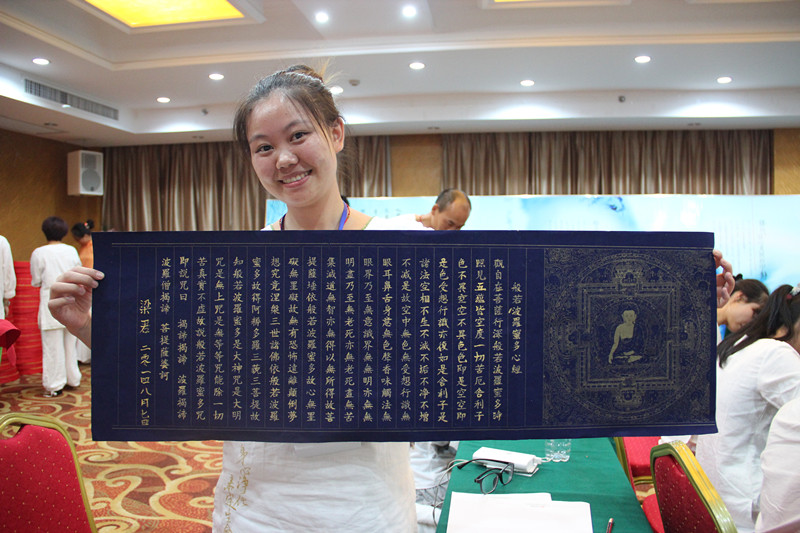 般若波羅蜜多心經
觀自在菩薩行深般若波羅蜜多時
照見五蘊皆空度一切苦厄舍利子
色不異空空不異色色即是空空即
是色受想行識亦復如是舍利子是
諸法空相不生不滅不垢不淨不增
不減是故空中無色無受想行識無
眼耳鼻舌身意無色聲香味觸法無
眼界乃至無意識界無無明亦無無
明盡乃至無老死亦無老死盡無苦
集滅道無智亦無得以無所得故菩
提薩埵依般若波羅蜜多故心無罣
礙無罣礙故無有恐怖遠離顛倒夢
想究竟涅槃三世諸佛依般若波羅
蜜多故得阿耨多羅三藐三菩提故
知般若波羅蜜多是大神咒是大明
咒是無上咒是無等等咒能除一切
苦真實不虛故說般若波羅蜜多咒
即說咒曰 揭諦揭諦 波羅揭諦
波羅僧揭諦 菩提薩婆訶
梁君 二零一四八月七日